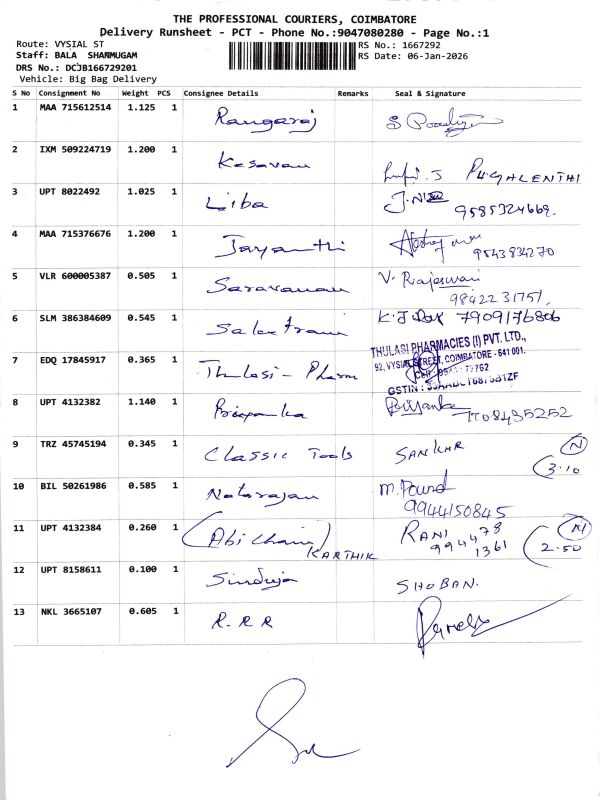 THE PROFESSIONAL COURIERS, COIMBATORE
Delivery Runsheet - PCT - Phone No.:9047080280 - Page No.:1
Route: VYSIAL ST
Staff: BALA SHANMUGAM
DRS No.: DCJB166729201
Vehicle: Big Bag Delivery
RS No.: 1667292
RS Date: 06-Jan-2026
S No Consignment No Weight PCS Consignee Details Remarks Seal & Signature
1 MAA 715612514 1.125 1 Rangaraj
2 IXM 509224719 1.200 1 Kesavan PUGALENTHI
3 UPT 8022492 1.025 1 Liba
9585324669.
4 MAA 715376676 1.200 1 Jayanthi
9543834270
5 VLR 600005387 0.505 1 Saravanan V. Rajeswari
9842231751,
6 SLM 386384609 0.545 1 K.J 7909176806
7 EDQ 17845917 0.365 1 Thulasi - Pharm
THULASI PHARMACIES (I) PVT. LTD.,
92, VYSIAL STREET, COIMBATORE - 641 001.
GSTIN :
8 UPT 4132382 1.140 1 Priyanka Priyanka
9 TRZ 45745194 0.345 1 Classic Tools SANKAR N
3.10
10 BIL 50261986 0.585 1 Natarajan
9944150845
11 UPT 4132384 0.260 1 KARTHIK RANI N
994478
1361 2.50
12 UPT 8158611 0.100 1 Sinduja SHOBAN.
13 NKL 3665107 0.605 1 R.R.R